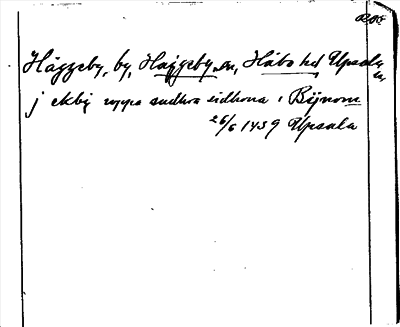 Häggeby, by, Häggeby sn, Håbo hd Upsala
j ekby uppa sudhra sidhona i Bijnom
26/6 1459 Upsala